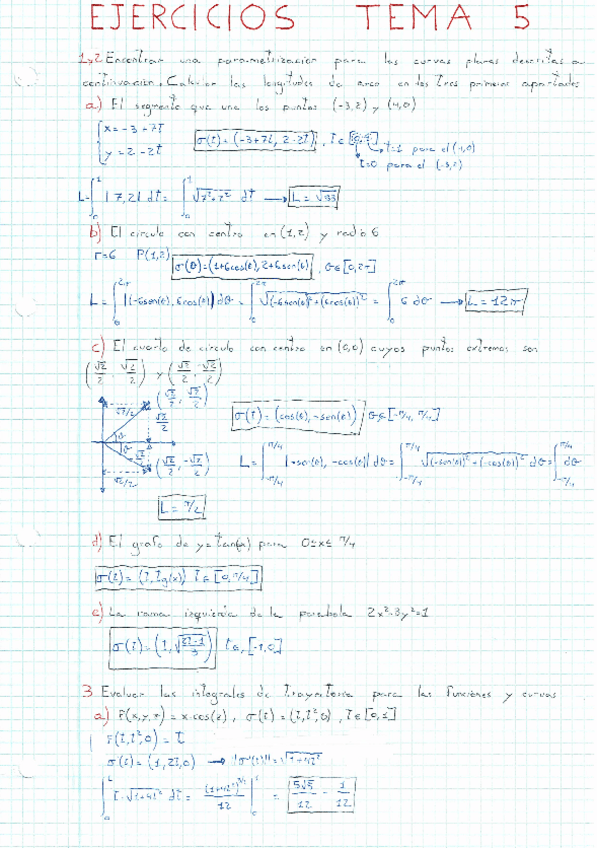 EJERCICIOS TEMA 5
1,2 Encontrar una parametrización para las curvas planas descritas a
continuación. Calcular las longitudes de arco en los tres primeros apartados
a) El segmento que une los puntos (-3,2) y (4,0)
x = -3 + 7t
y = 2 - 2t
σ(t) = (-3+7t, 2-2t), t ∈ [0,1]
t=1 para el (4,0)
t=0 para el (-3,2)
b) El circulo con centro en (1,2) y radio 6
r=6 P(1,2) σ(θ) = (1+6cos(t), 2+6sen(t)), θ∈[0,2π]
L = ∫₀^2π |(-6sen(t), 6cos(t))| dθ = ∫₀^2π √(-6sen(t))²+(6cos(t))² = ∫₀^2π 6 dθ → L = 12π
c) El cuarto de circulo con centro en (0,0) cuyos puntos extremos son
(√2/2, √2/2) y (√2/2, -√2/2)
σ(t) = (cos(t), -sen(t)) θ∈[-π/4, π/4]
L = π/2
d) El grafo de y=tan(x) para 0≤x≤π/4
σ(t) = (t, tg(x)) t∈[0, π/4]
e) La rama izquierda de la parabola 2x²-3y²=1
3 Evaluar las integrales de trayectoria para las funciones y curvas
a) F(x,y,z) = x·cos(z), σ(t) = (t,t²,0), t∈[0,1]
F(t,t²,0) = t
σ(t) = (1,2t,0) → ||σ'(t)|| = √1+4t²
∫₀¹ t·√1+4t² dt = (1+4t²)^3/2 / 12 |₀¹ = 5√5/12 - 1/12